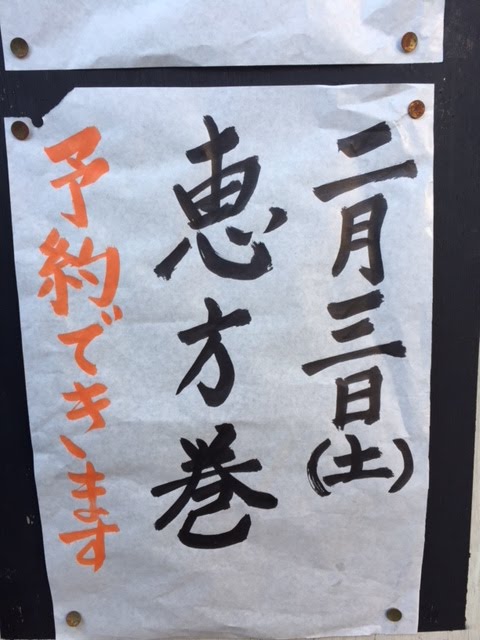 二月三日(土)
恵方巻
予約できます